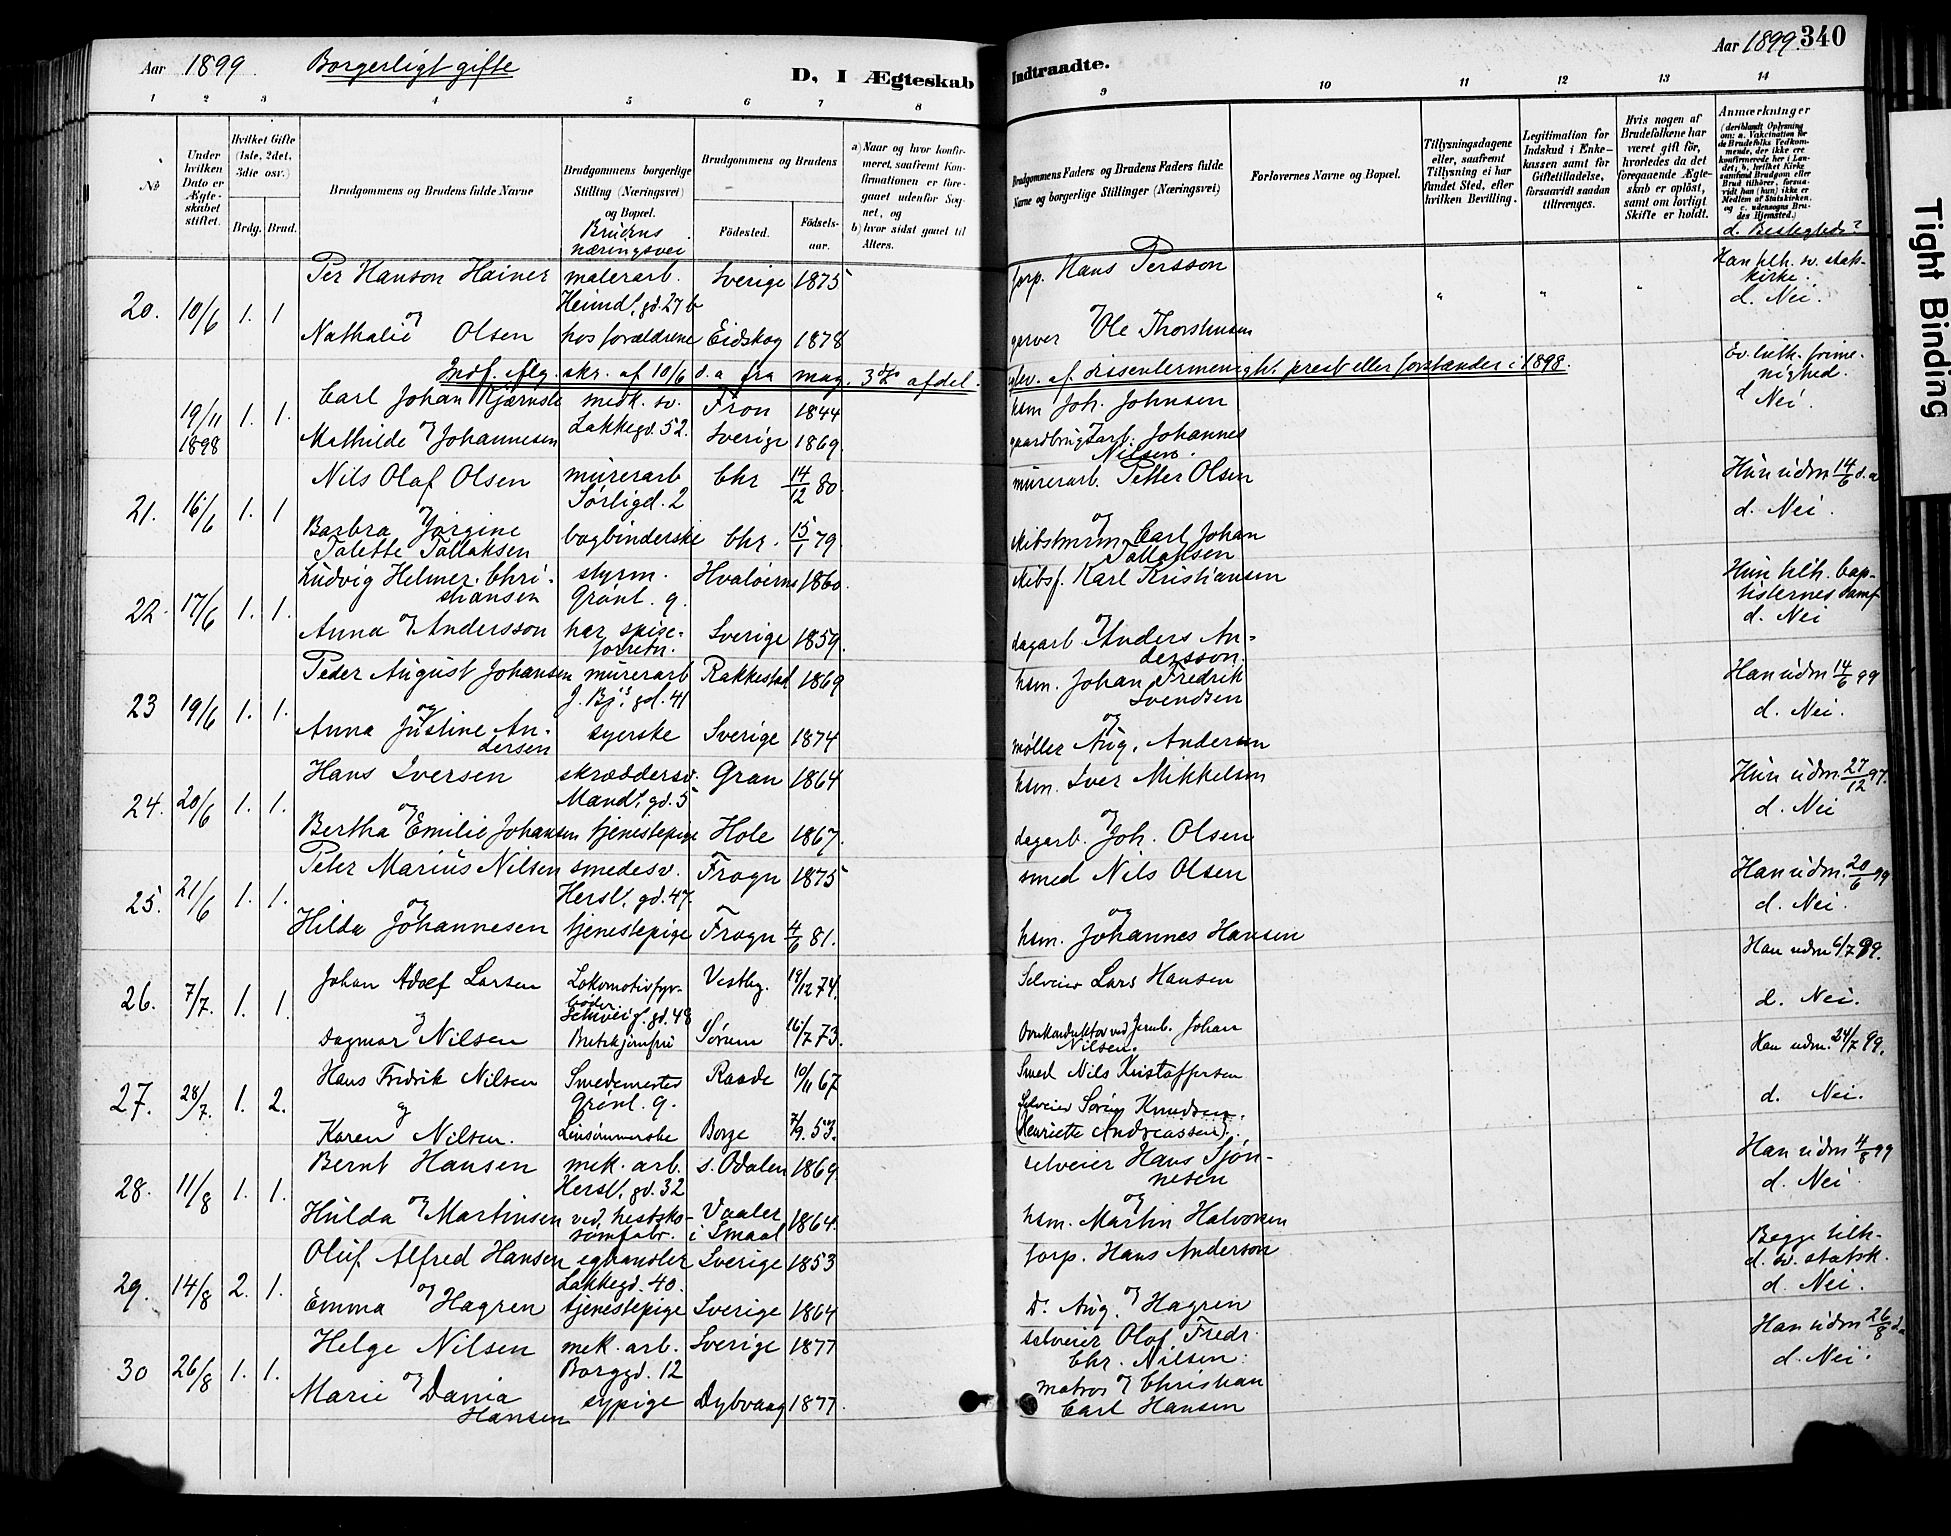 Aar 1899. Borgerligt gifte D, I Ægteskab
1 2 3 4 5 6 7 8
No
Under hvilken Dato er Ægteskabet stiftet.
Hvilket Gifte (1ste, 2det, 3die osv.)
Brdg. Brud.
Brudgommens og Brudens fulde Navne
Brudgommens borgerlige Stilling (Næringsvei) og Bopæl.
Brudens næringsvei
Brudgommens og Brudens
Födested. Födselsaar.
a) Naar og hvor konfirmeret, saafremt Konfirmationen er foregaaet udenfor Sognet, og
b) hvor sidst gaaet til Alters.
Per Hanson Hainer malerarb. Sverige 1875
Heimdl. gd. 27 b
20. 10/6 1. 1 og
Nathalie Olsen hos forældrene Eidskog 1878
Indf. flg. skr. af 10/6 d. a fra mag. 3die afdel.
Carl Johan Kjærnsli mek. sv. Fron 1844
19/11 1898 1. 1. Lakkegd. 52.
Mathilde og Johannesen Sverige 1869.
Nils Olaf Olsen murerarb Chr 14/12 80.
Sørligd. 2
21. 16/6 1. 1 og
Barbra Jørgine bogbinderske Chr. 15/1 79.
Talette Tallaksen
Ludvig Helmer Chri- styrm. Hvaløerne 1860.
stiansen Grönl. 9.
22. 17/6 1. 1.
Anna og Andersson har spise- Sverige 1859.
forretn.
Peder August Johansen murerarb Rakkestad 1869
J. Bj's gd. 41
23 19/6 1. 1. og
Anna Justine An- syerske Sverige 1874
dersen
Hans Iversen skræddersv. Gran 1864
Mandl. gd. 5
24. 20/6 1. 1.
Bertha og Emilie Johansen tjenestepige Hole 1867.
Peter Marius Nilsen smedesv. Frogn 1875
Hersl. gd. 47.
25. 21/6 1. 1. og
Hilda Johannesen tjenestepige Frogn 4/6 81.
Johan Adolf Larsen Lokomotivfyr- Vestby. 19/12 74.
bøder
26. 7/7. 1. 1. Schweig. gd. 48
og
Dagmar Nilsen Sørum 16/7 73.
Hans Fredrik Nilsen Smedemester Raade 10/11 67
27. 28/7. 1. 2. og Grönl. 9.
Karen Nilsen. Linsømmerske Borge 7/9. 53.
Bernt Hansen mek. arb. s. Odalen 1869
28. 11/8 1. 1. Hersl. gd. 32
Hulda og Martinsen ved hestsko- Vaaler 1864.
sømfabr. i Smaal
Oluf Alfred Hansen eghandler Sverige 1853
Lakkegd. 40.
29. 14/8 2. 1.
Emma og Hagren tjenestepige Sverige 1864
Helge Nilsen mek. arb. Sverige 1877
30 26/8 1. 1. Borggd. 12
Marie og Dania sypige Dybvaag 1877.
Hansen
Indtraadte. Aar 1899 340
9 10 11 12 13 14
Brudgommens Faders og Brudens Faders fulde Navne og borgerlige Stillinger (Næringsvei)
Forlovernes Navne og Bopæl.
Tillysningsdagene eller, saafremt Tillysning ei har fundet Sted, efter hvilken Bevilling.
Legitimation for Indskud i Enkekassen samt for Giftetilladelse, forsaavidt saadan tiltrænges.
Hvis nogen af Brudefolkene har været gift för, hvorledes da det foregaaende Ægteskab er oplöst, samt om lovligt Skifte er holdt.
Anmærkninger (deriblandt Oplysning om: a. Vakcination for de Brudefolks Vedkommende, der ikke ere konfirmerede her i Landet; b. hvilket Kirkesamfund Brudgom eller Brud tilhörer, forsaavidt han (hun) ikke er Medlem af Statskirken, og c. udensogns Brudes Hjemsted.)
d. Beslegtede?
torp. Hans Persson Han tilh. sv. stats-
kirke.
" " " d. Nei.
garver og Ole Thorstensen
udev. af dissentermenigh. prest eller forstander i 1898. Ev. luth. frime-
nighed.
hsm Joh. Johnsen d Nei.
gaardbrug og Johannes
Nilsen.
murerarb. Petter Olsen Hun udm 14/6 d. a
d. Nei.
og
skibstmrm. Carl Johan
Tallaksen
skibsf. Karl Kristiansen Hun tilh. bap-
tisternes samf
d. Nei
dagarb og Anders An-
dersson.
hsm. Johan Fredrik Han udm 14/6 99
Svendsen
og d. Nei.
møller Aug. Andersen
hsm. Iver Mikkelsen Hun udm. 27/12 97.
d. Nei
dagarb. og Joh. Olsen
smed Nils Olsen Han udm. 20/6 99
og d. Nei.
hsm. Johannes Hansen
Selveier Lars Hansen Han udm 6/7 99.
d. Nei.
Johan
Nilsen.
Smed Nils Kristoffersen Han udm. 24/7 99.
Selveier Sören Knudsen. d. Nei.
(Henriette Andreassen).
selveier Hans Sjøn- Han udm 4/8 99
nesen d. Nei.
og
hsm. Martin Halvorsen
torp. Hans Anderson Begge tilh-
d. sv. statsk.
d. Nei.
Do Aug. og Hagren
selveier Olof Fredr. Han udm 26/8 d. a
Chr. Nilsen. d. Nei.
matros og Christian
Carl Hansen
Tight Binding